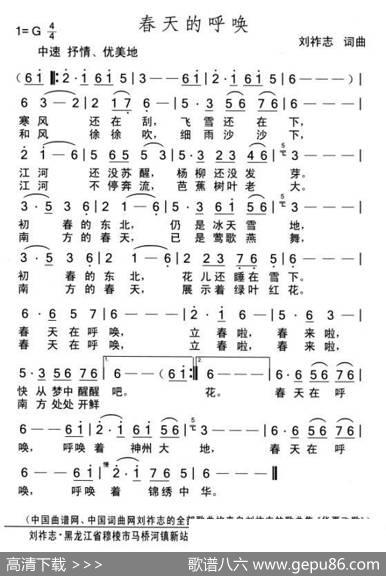 春天的呼唤
1=G 4/4
中速 抒情、优美地
刘祚志 词曲
寒风 还在刮，飞雪还在下，
和风 徐徐吹，细雨沙沙下，
江河 还没苏醒，杨柳还没发芽。
江河 不停奔流，芭蕉树叶老大。
初春的东北，仍是冰天雪地，
南方的春天，已是莺歌燕舞，
初春的东北，花儿还睡在雪下。
南方的春天，展示着绿叶红花。
春天在呼唤，立春啦，春来啦，
春天在呼唤，立春啦，春来啦，
快从梦中醒醒吧。花。春天在呼
南方处处开鲜
唤，呼唤着神州大地，春天在呼
唤，呼唤着锦绣中华。
（中国曲谱网、中国词曲网刘祚志的全
刘祚志·黑龙江省穆棱市马桥河镇新站
高清下载 >>>
歌谱八六 www.gepu86.com